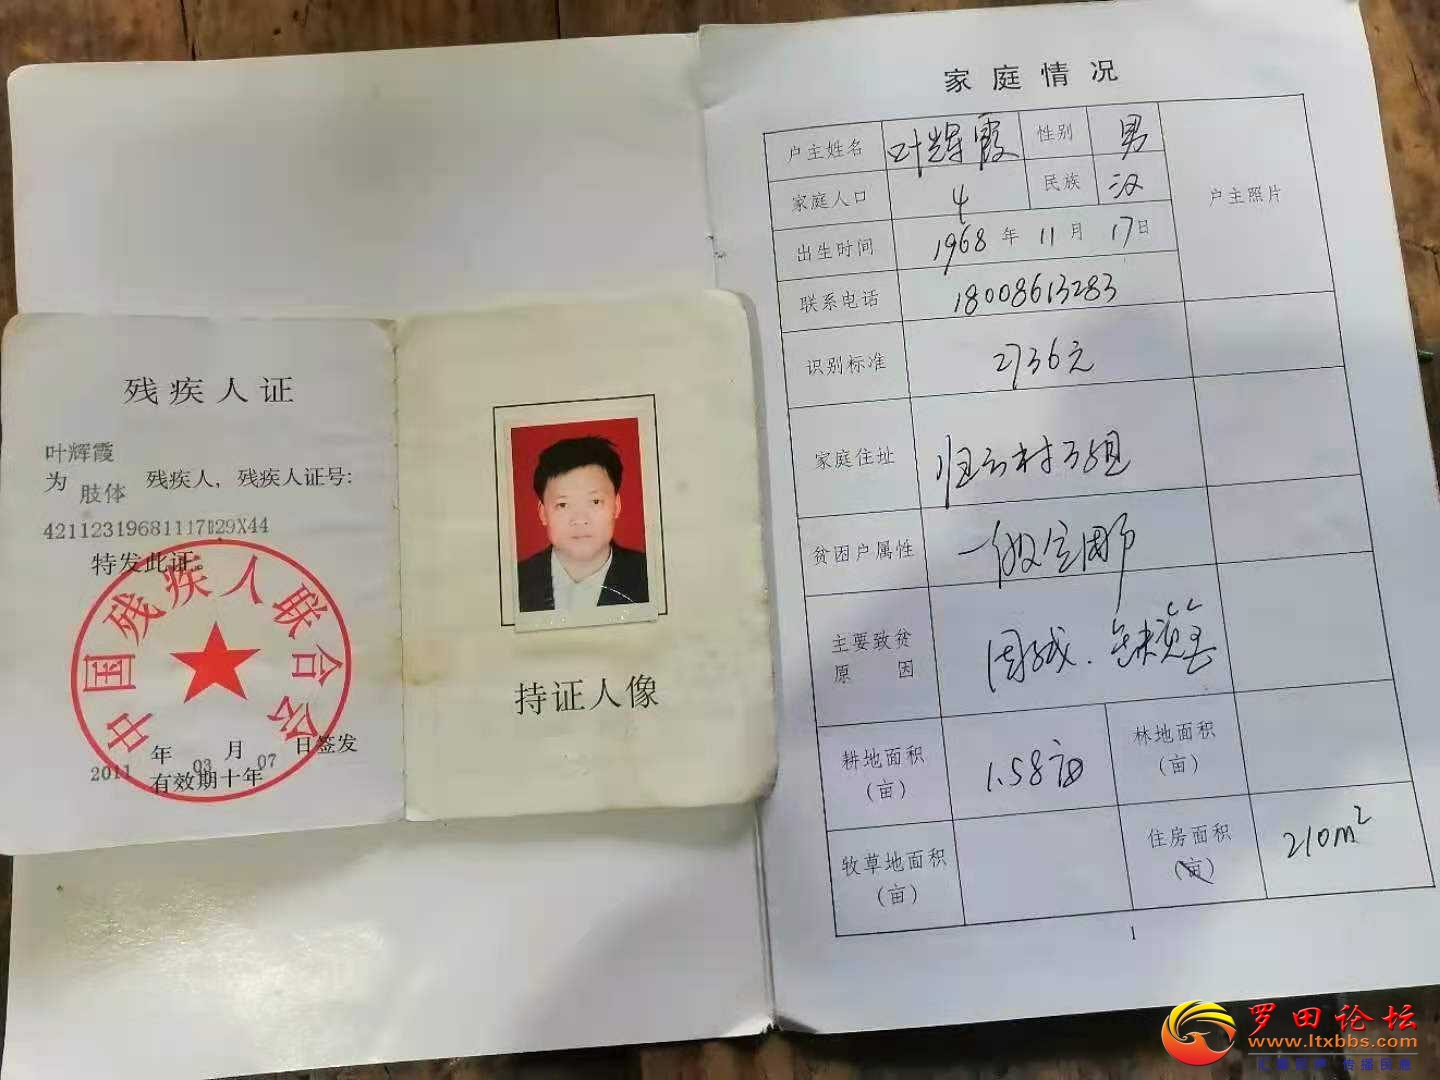 残疾人证
叶辉霞
为 肢体 残疾人，残疾人证号：
42112319681117B29X44
特发此证。
中国残疾人联合会
2011 年 03 月 07 日签发
有效期十年
持证人像
家庭情况
户主姓名 叶辉霞 性别 男 户主照片
家庭人口 4 民族 汉
出生时间 1968 年 11 月 17 日
联系电话 18008613283
识别标准 2736元
家庭住址 归云村 组
贫困户属性 一般贫困户
主要致贫 因残、缺资金
原因
耕地面积 1.58亩 林地面积
（亩） （亩）
牧草地面积 住房面积 210m²
（亩） （亩）
1
罗田论坛
www.ltxbbs.com